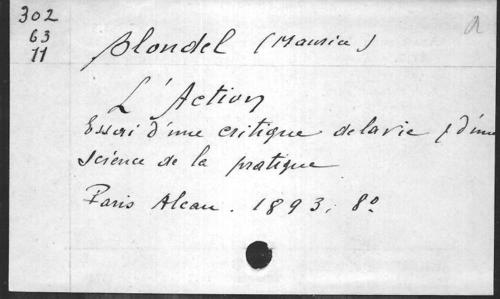 302
63
11
a
Blondel (Maurice)
L'Action
Essai d'une critique de la vie & d'une
science de la pratique
Paris Alcan. 1893, 8º